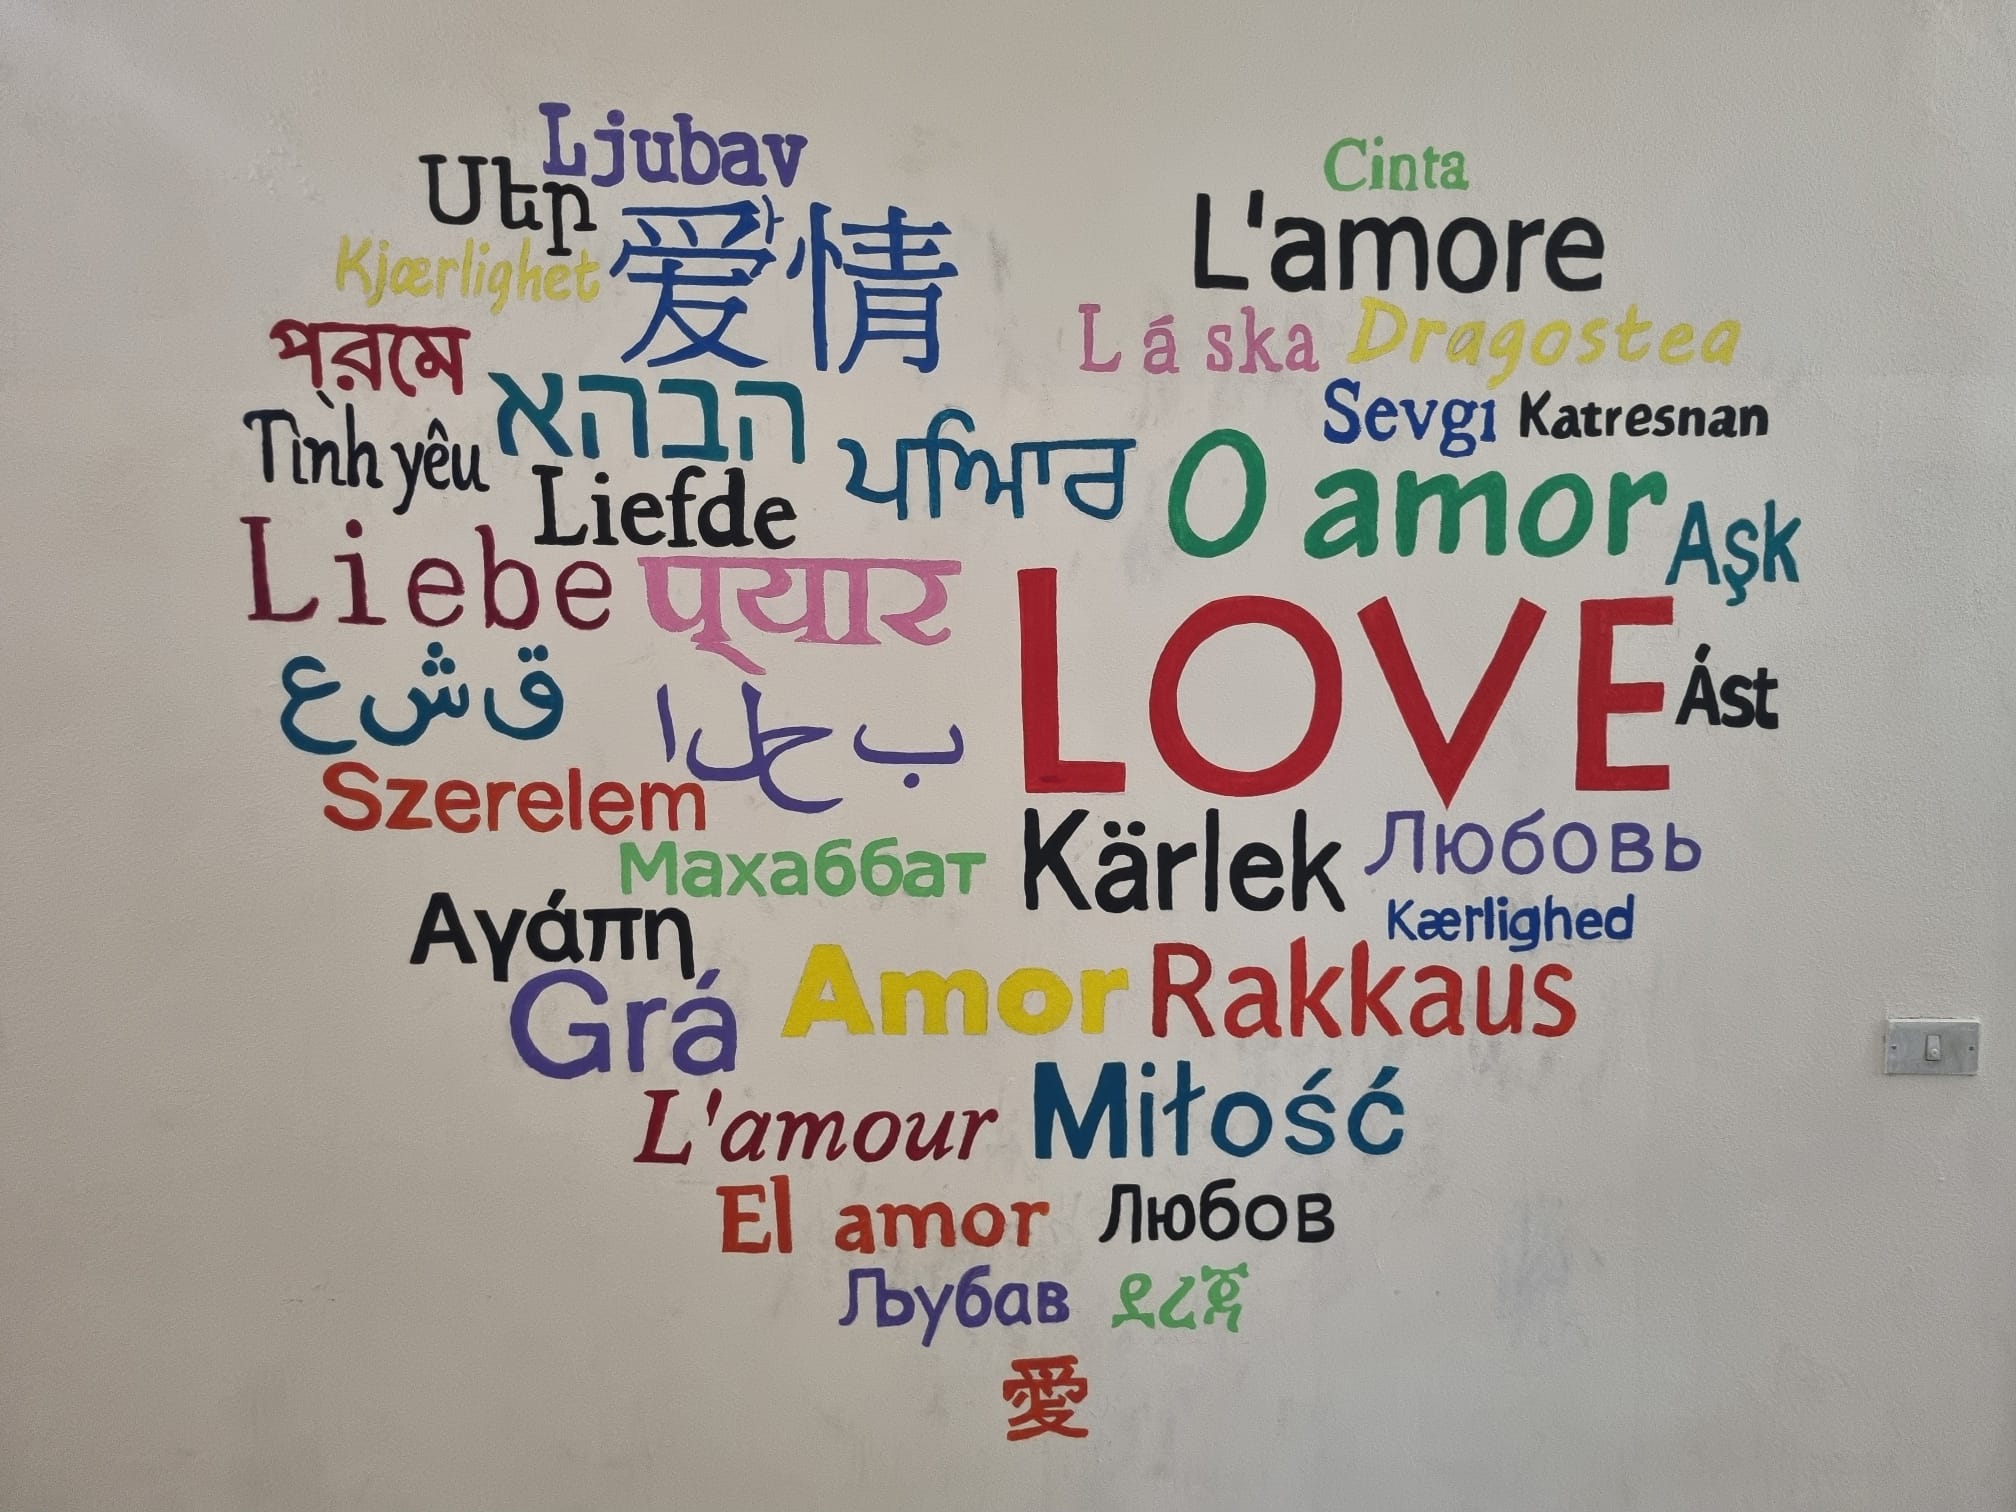 Ljubav
Սեր
Kjærlighet
爱情
Cinta
L'amore
Láska
Dragostea
প্‌রমে
הבהא
Sevgı
Katresnan
Tình yêu
Liefde
ਪਿਆਰ
O amor
Aşk
Liebe
प्‌यार
LOVE
Ást
ق ش ع
ب ح ل ا
Szerelem
Kärlek
Любовь
Махаббат
Kærlighed
Αγάπη
Grá
Amor
Rakkaus
L'amour
Miłość
El amor
Любов
Љубав
愛